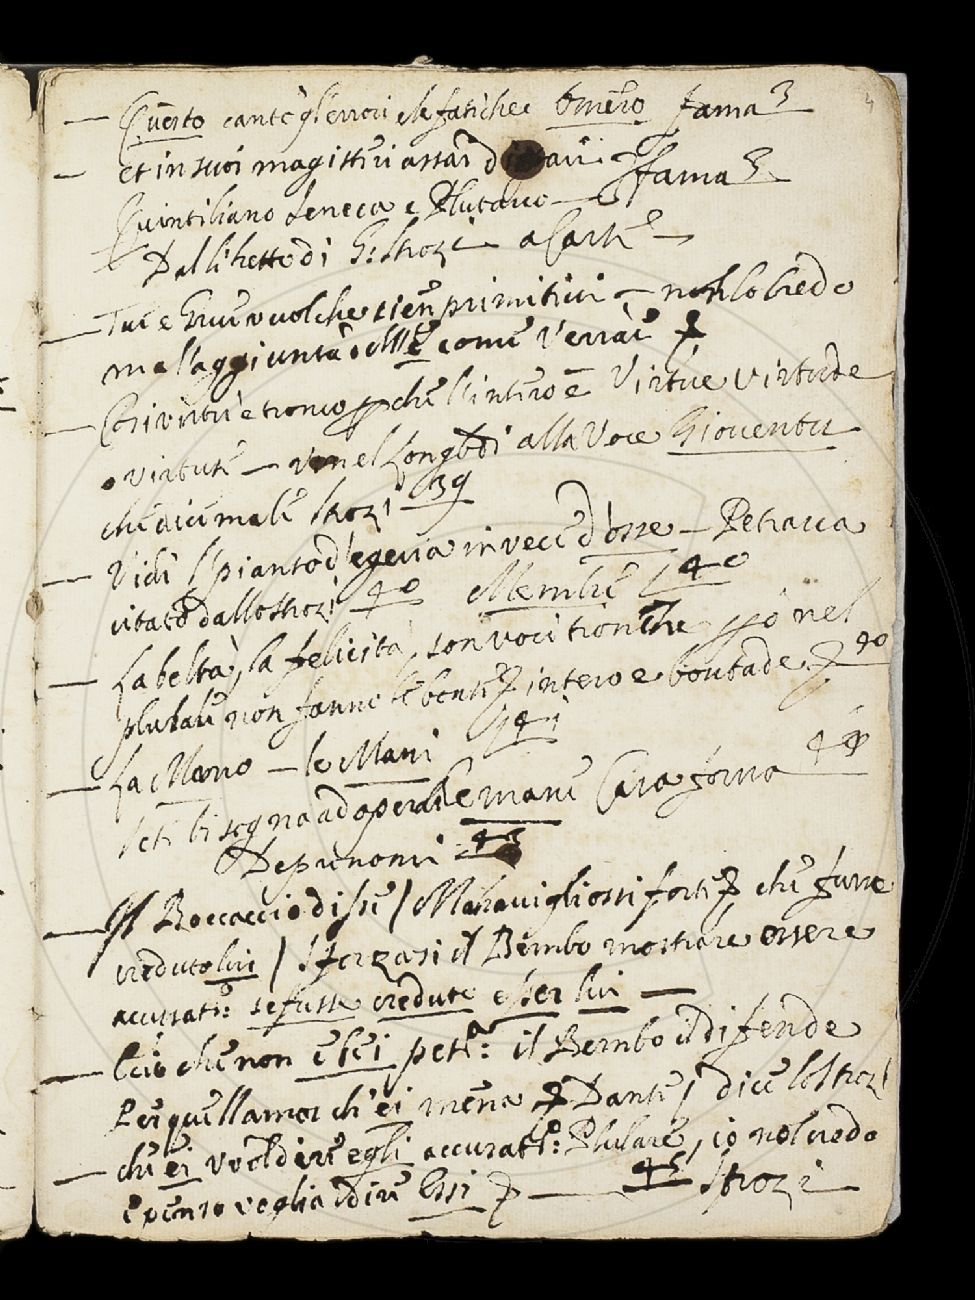 — Questo cantò gl'errori e le fatiche Omero fama 3
— et in suoi magisteri assai fama 3
Quintiliano Seneca e Plutarco —
Dal libretto di G: Strozi a carte —
— vuol che sien primitivi — nol credo
ma l'aggiunta come
— Così virtù è tronco perche l'intero è Virtue virtude
o virtute — nel alla Voce Gioventu
che dice male Strozi — 39
— Vidi il pianto d'egeria in vece d'osse — Petrarca
citato dallo Strozi 40 Membre / 40
— La beltà, la felicità, son voci tronche però nel
plurale non fanno le intero e bontade 40
— La Mano — le Mani 41
seti bisogna adoperar le mane Cara gioia 4
De pronomi 43
— Il Boccaccio disse / Maravigliossi forte che fusse
creduto lui / Sforzasi il Bembo mostrare essere
accusat: se fusse credute esser lui —
— Ciò che non è lei petr: il Bembo il difende
Per quell amor ch'ei mena Dante / dice lo Strozi
— che ei vuol dire egli accusat: Plulare, io nol credo
e penso voglia dire Essi — 45 Strozi
4